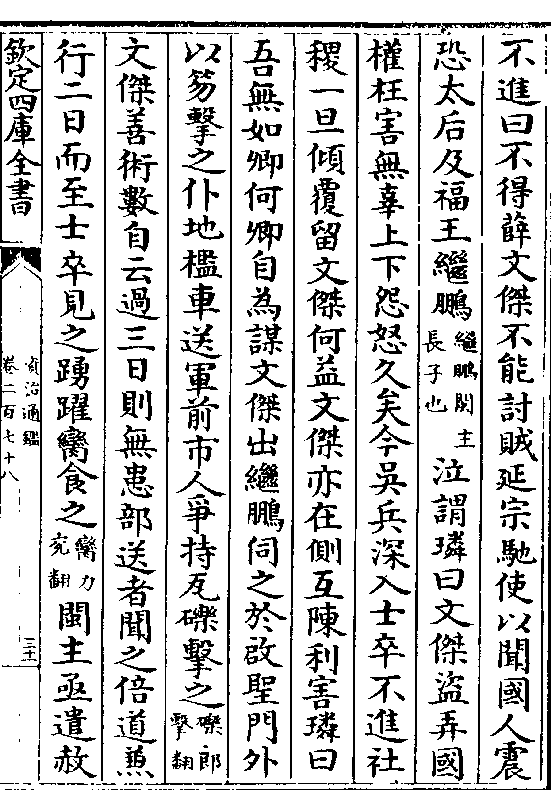 不進曰不得薛文傑不能討賊延宗馳使以聞國人震
恐太后及福王繼鵬繼鵬閩主長子也泣謂璘曰文傑盜弄國
權枉害無辜上下怨怒久矣今吳兵深入士卒不進社
稷一旦傾覆留文傑何益文傑亦在側互陳利害璘曰
吾無如卿何卿自為謀文傑出繼鵬伺之於啟聖門外
以笏擊之仆地檻車送軍前市人爭持瓦礫擊之礫郎擊翻
文傑善術數自云過三日則無患部送者聞之倍道兼
行二日而至士卒見之踴躍臠食之臠力兖翻閩主亟遣赦
欽定四庫全書
資治通鑑
卷二百七十八
三十